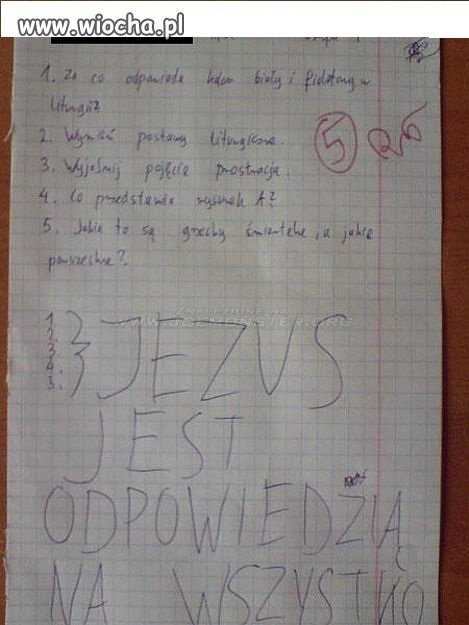 www.wiocha.pl
1. Za co odpowiada kolor biały i fioletowy w
liturgii?
2. Wymień postawy liturgiczne.
3. Wyjaśnij pojęcie prostracja.
4. Co przedstawia rysunek A?
5. Jakie to są grzechy śmiertelne, a jakie
powszednie?
5
ZNALEZIONE NA
WWW.JOEMONSTER.ORG
1. } JEZUS
2.
3.
4.
5.
JEST
ODPOWIEDZIĄ
NA WSZYSTKO